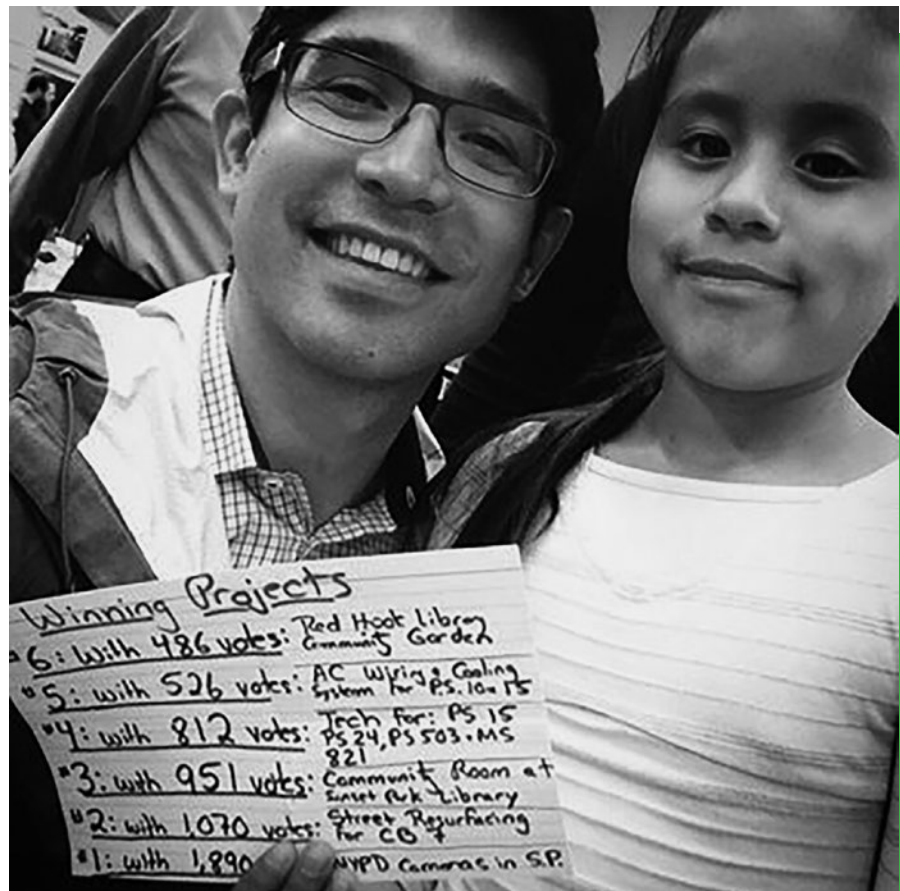 Winning Projects
#6: with 486 votes: Red Hook Library
Community Garden
#5: with 526 votes: AC Wiring & Cooling
System for PS.10 & 15
#4: with 812 votes: Tech for: PS 15
PS 24, PS 503 & MS
821
#3: with 951 votes: Community Room at
Sunset Park Library
#2: with 1,070 votes: Street Resurfacing
for CB 7
#1: with 1,890 NYPD Cameras in S.P.